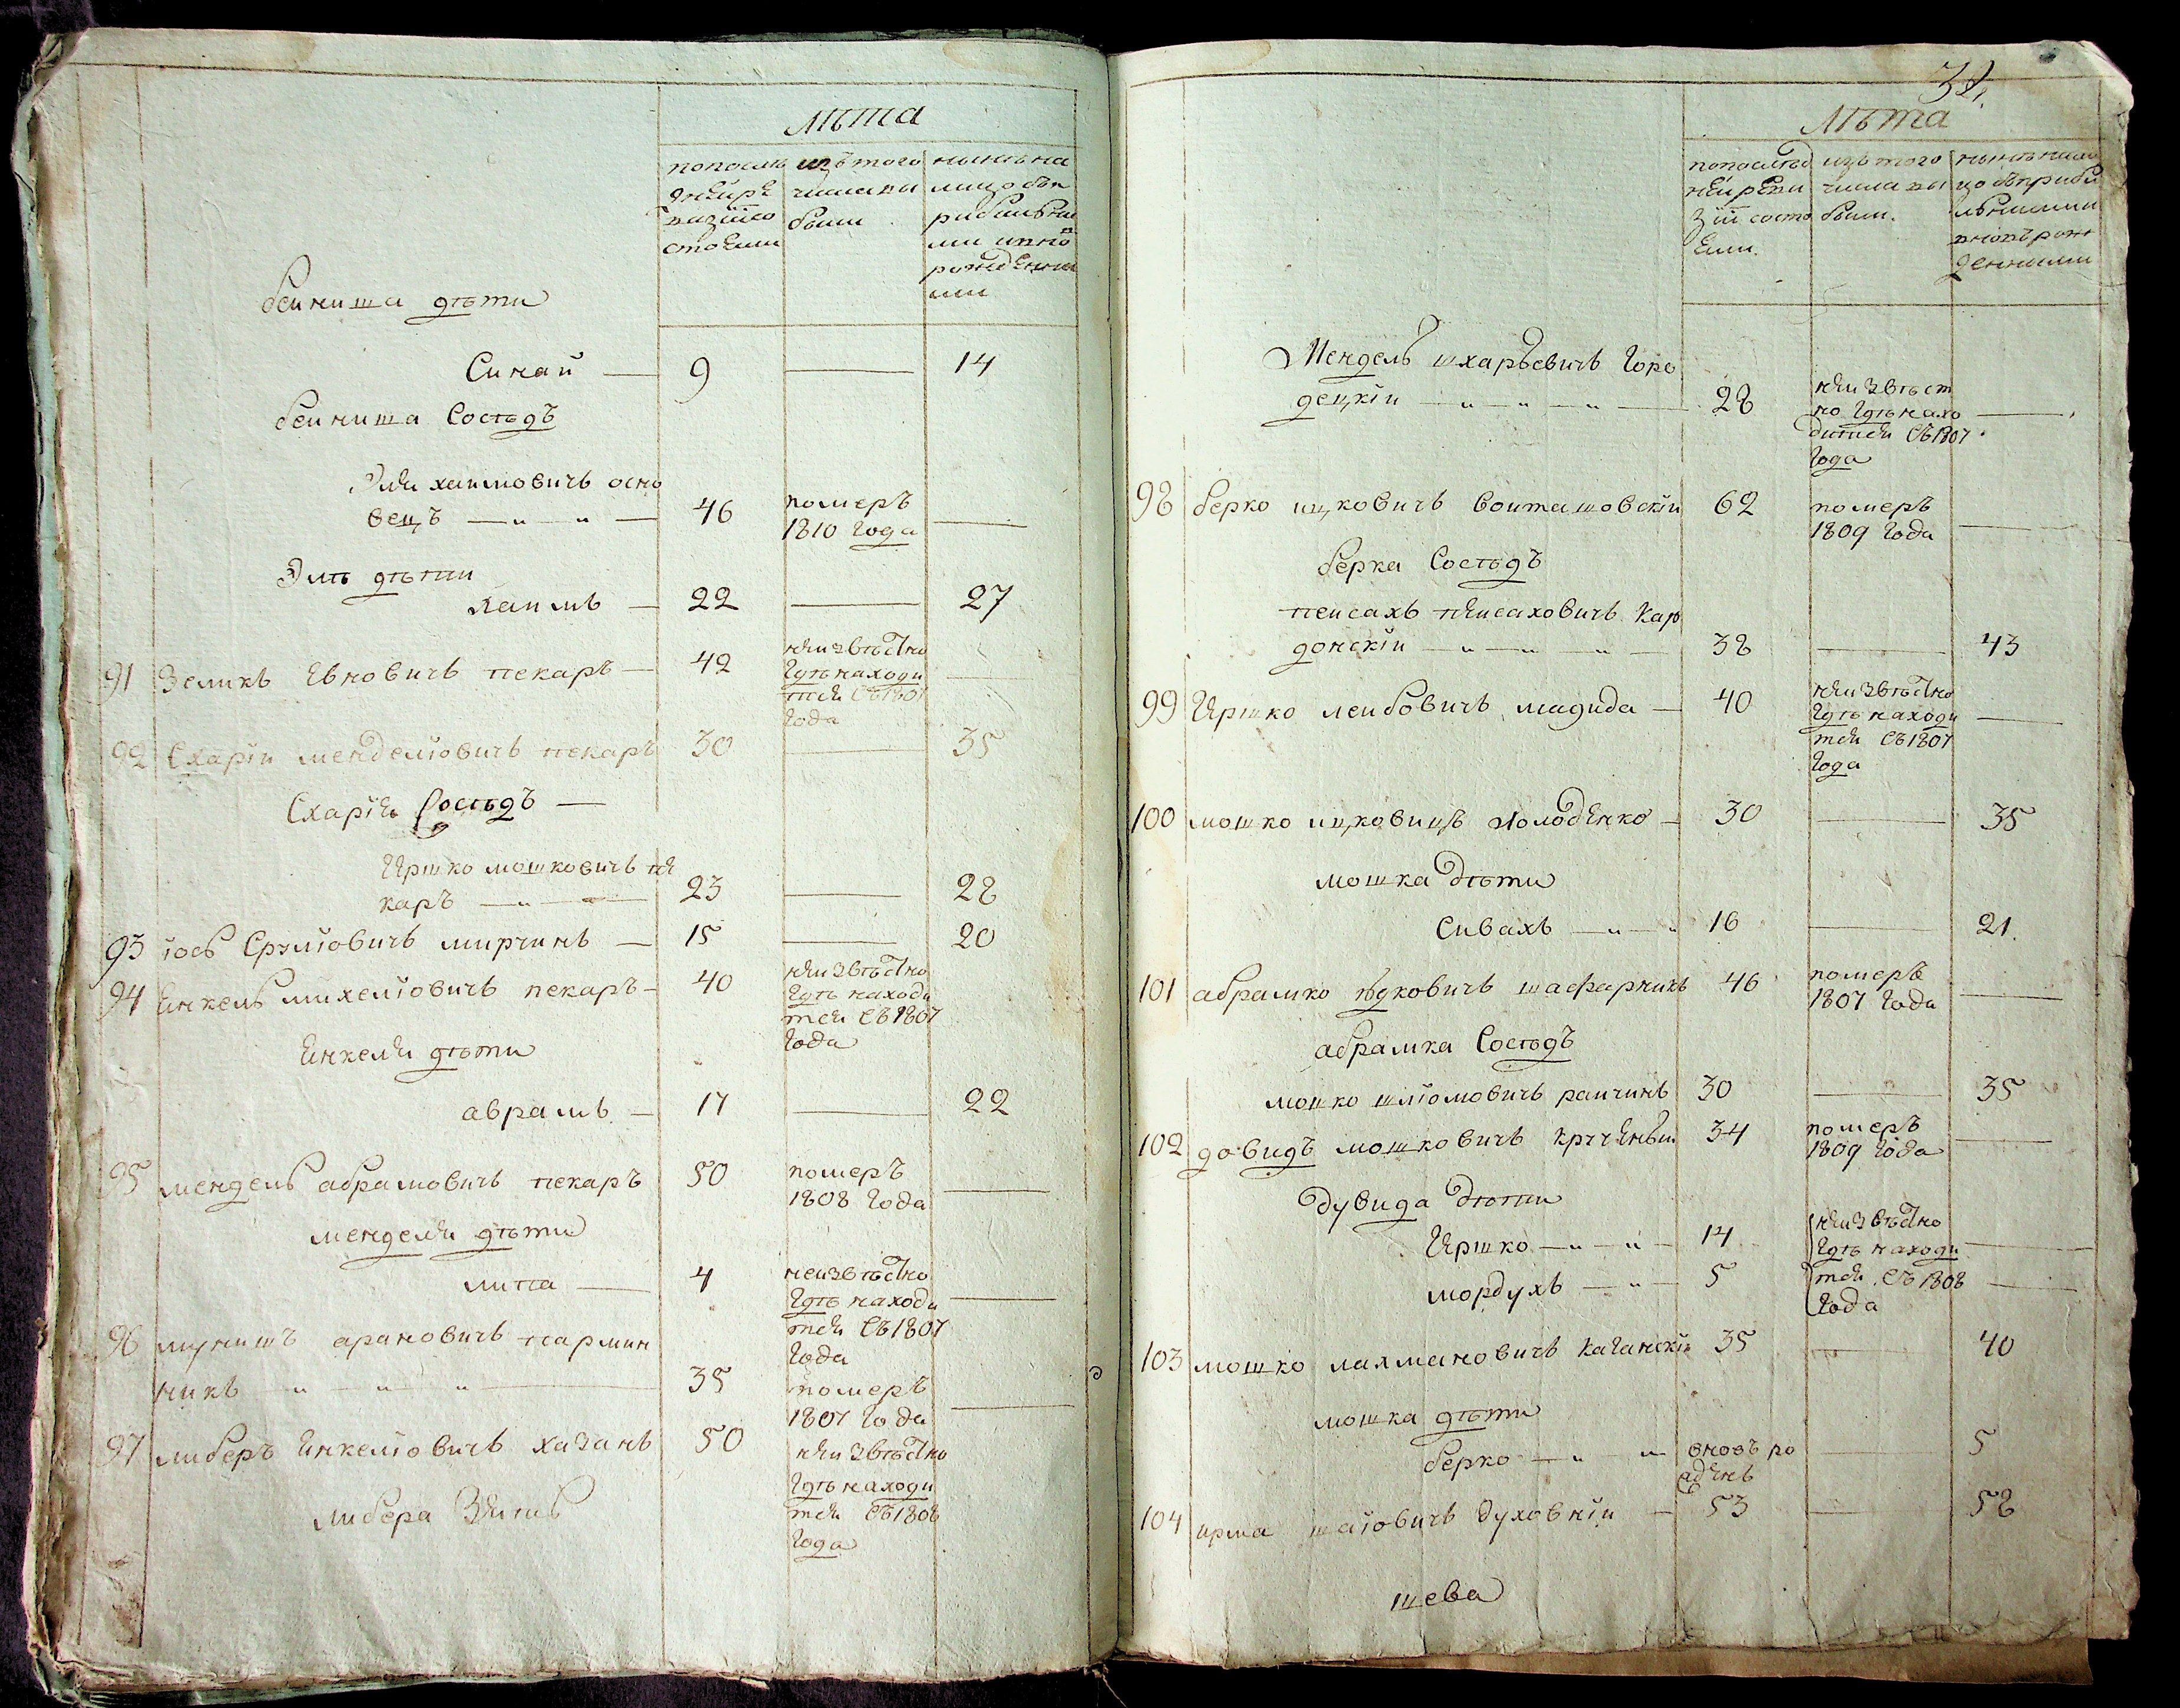 лѣта
попослѣ
дней ре
визіи со
стояли
изъ того
числа вы
были
нынѣ на
лицо съ п
рибылы
ми и вно
рожденны
ми
беиниша дѣти
Синай — 9 — 14
беиниша Сосѣдъ
Эля хаимовичъ осно
вецъ — „ — „ — 46
померъ
1810 Года —
Эли дѣти
хаимъ — 22 — 27
91 Зеликъ Евновичъ пекаръ — 42
неизвѣстно
Гдѣ находи
тся съ 1807
Года —
92 Схарія менделіовичъ пекаръ 30 — 35
Схарія Сосѣдъ —
Иршко мошковичъ пе
каръ — „ — 23 — 28
93 іось Срулiовичъ мирчинъ — 15 — 20
94 Енкель михеліовичъ пекаръ — 40
неизвѣстно
Гдѣ находи
тся съ 1807
Года
Енкеля дѣти
аврамъ — 17 — 22
95 мендель абрамовичъ пекаръ 50
померъ
1808 Года —
менделя дѣти
липа — 4
неизвѣстно
Гдѣ находи
тся съ 1807
Года —
96 мунишъ арановичъ пармин
никъ — „ — „ — „ — 35
померъ
1807 Года —
97 либеръ Енкеліовичъ хазанъ 50
неизвѣстно
Гдѣ находи
тся съ 1808
Года
либера Зять
34.
лѣта
попослѣд
ней реви
зіи состо
яли.
изъ того
числа вы
были.
нынѣ нали
цо съ прибы
лыми и
вновь рож
денными
Мендель шхарьевичъ Горо
децкій — „ — „ — „ — 28
неизвѣст
но Гдѣ нахо
дится съ 1807
Года —
98 берко ицковичъ войташовскій 62
померъ
1809 Года —
берка Сосѣдъ
пейсахъ пейсаховичъ Кар
донскій — „ — „ — 38 — 43
99 Иршко лейбовичъ магида — 40
неизвѣстно
Гдѣ находи
тся съ 1807
Года —
100 мошко ицковичъ холоденко — 30 — 35
мошка дѣти
Сивахъ — „ — „ 16 — 21.
101 абрамко юдковичъ шафарникъ 46
померъ
1807 Года —
абрамка Сосѣдъ
мошко шліомовичъ раичинъ 30 — 35
102 довидъ мошковичъ 34
померъ
1809 Года —
дувида дѣти
Иршко — „ — „ — 14 —
мордухъ — „ — 5 —
неизвѣстно
Гдѣ находи
тся съ 1808
Года
103 мошко лахмановичъ каганскій 35 — 40
мошка дѣти
берко — „ — „ вновь ро
жденъ — 5
104 ирма шаіовичъ духовній — 53 — 58
шева